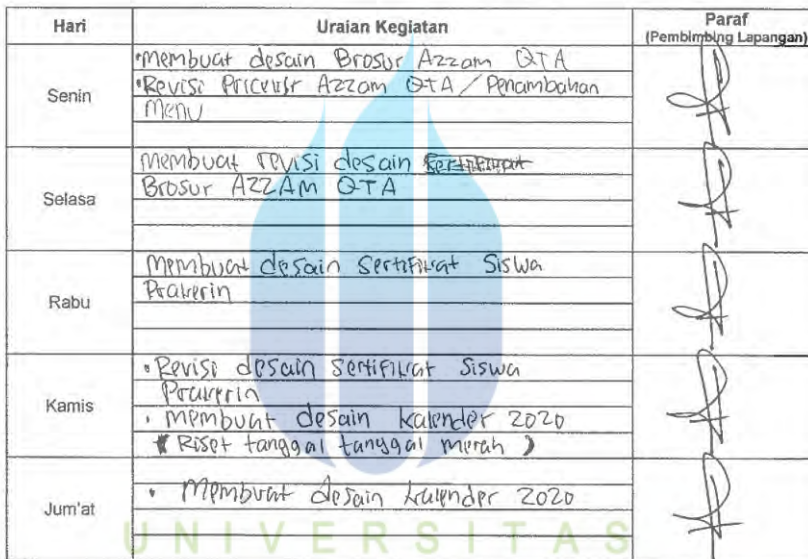 Hari Uraian Kegiatan Paraf
(Pembimbing Lapangan)
Senin
•Membuat desain Brosur Azzam QTA
•Revisi Pricelist Azzam QTA / Penambahan
Menu
Selasa
Membuat revisi desain Sertifikat
Brosur AZZAM QTA
Rabu
Membuat desain Sertifikat Siswa
Prakerin
Kamis
• Revisi desain Sertifikat Siswa
Prakerin
• Membuat desain kalender 2020
( Riset tanggal tanggal merah )
Jum'at
• Membuat desain kalender 2020
UNIVERSITAS